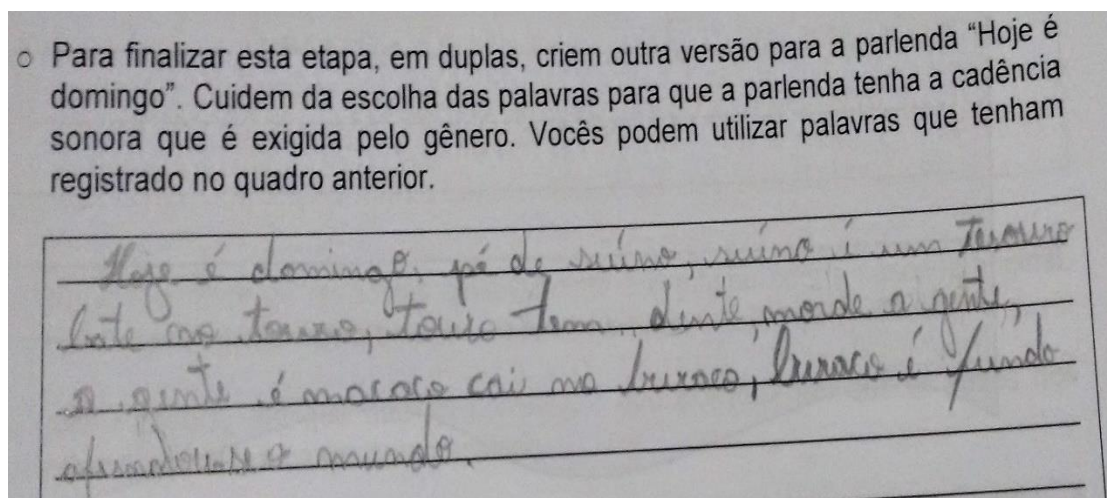 ○ Para finalizar esta etapa, em duplas, criem outra versão para a parlenda “Hoje é
domingo”. Cuidem da escolha das palavras para que a parlenda tenha a cadência
sonora que é exigida pelo gênero. Vocês podem utilizar palavras que tenham
registrado no quadro anterior.
Hoje é domingo, pé de suíno, suíno é um Tesouro
bate no touro, Touro Tem dente, morde a gente,
a gente é macaco cai no buraco, buraco é fundo
afundou-se o mundo.